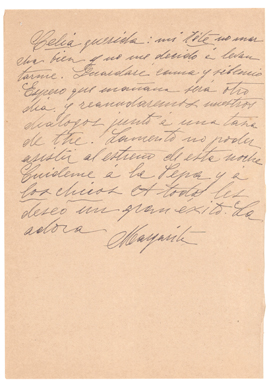 Celia querida: mi tité no mar
cha bien y no me decido á levan
tarme. Guardaré cama y silencio
Espero que mañana será otro
día y reanudaremos nuestros
diálogos junto á una taza
de the. Lamento no poder
asistir al estreno de esta noche
Cuídeme á la Pepa y a
los chicos. A todos les
deseo un gran éxito. La
adora
Margarita